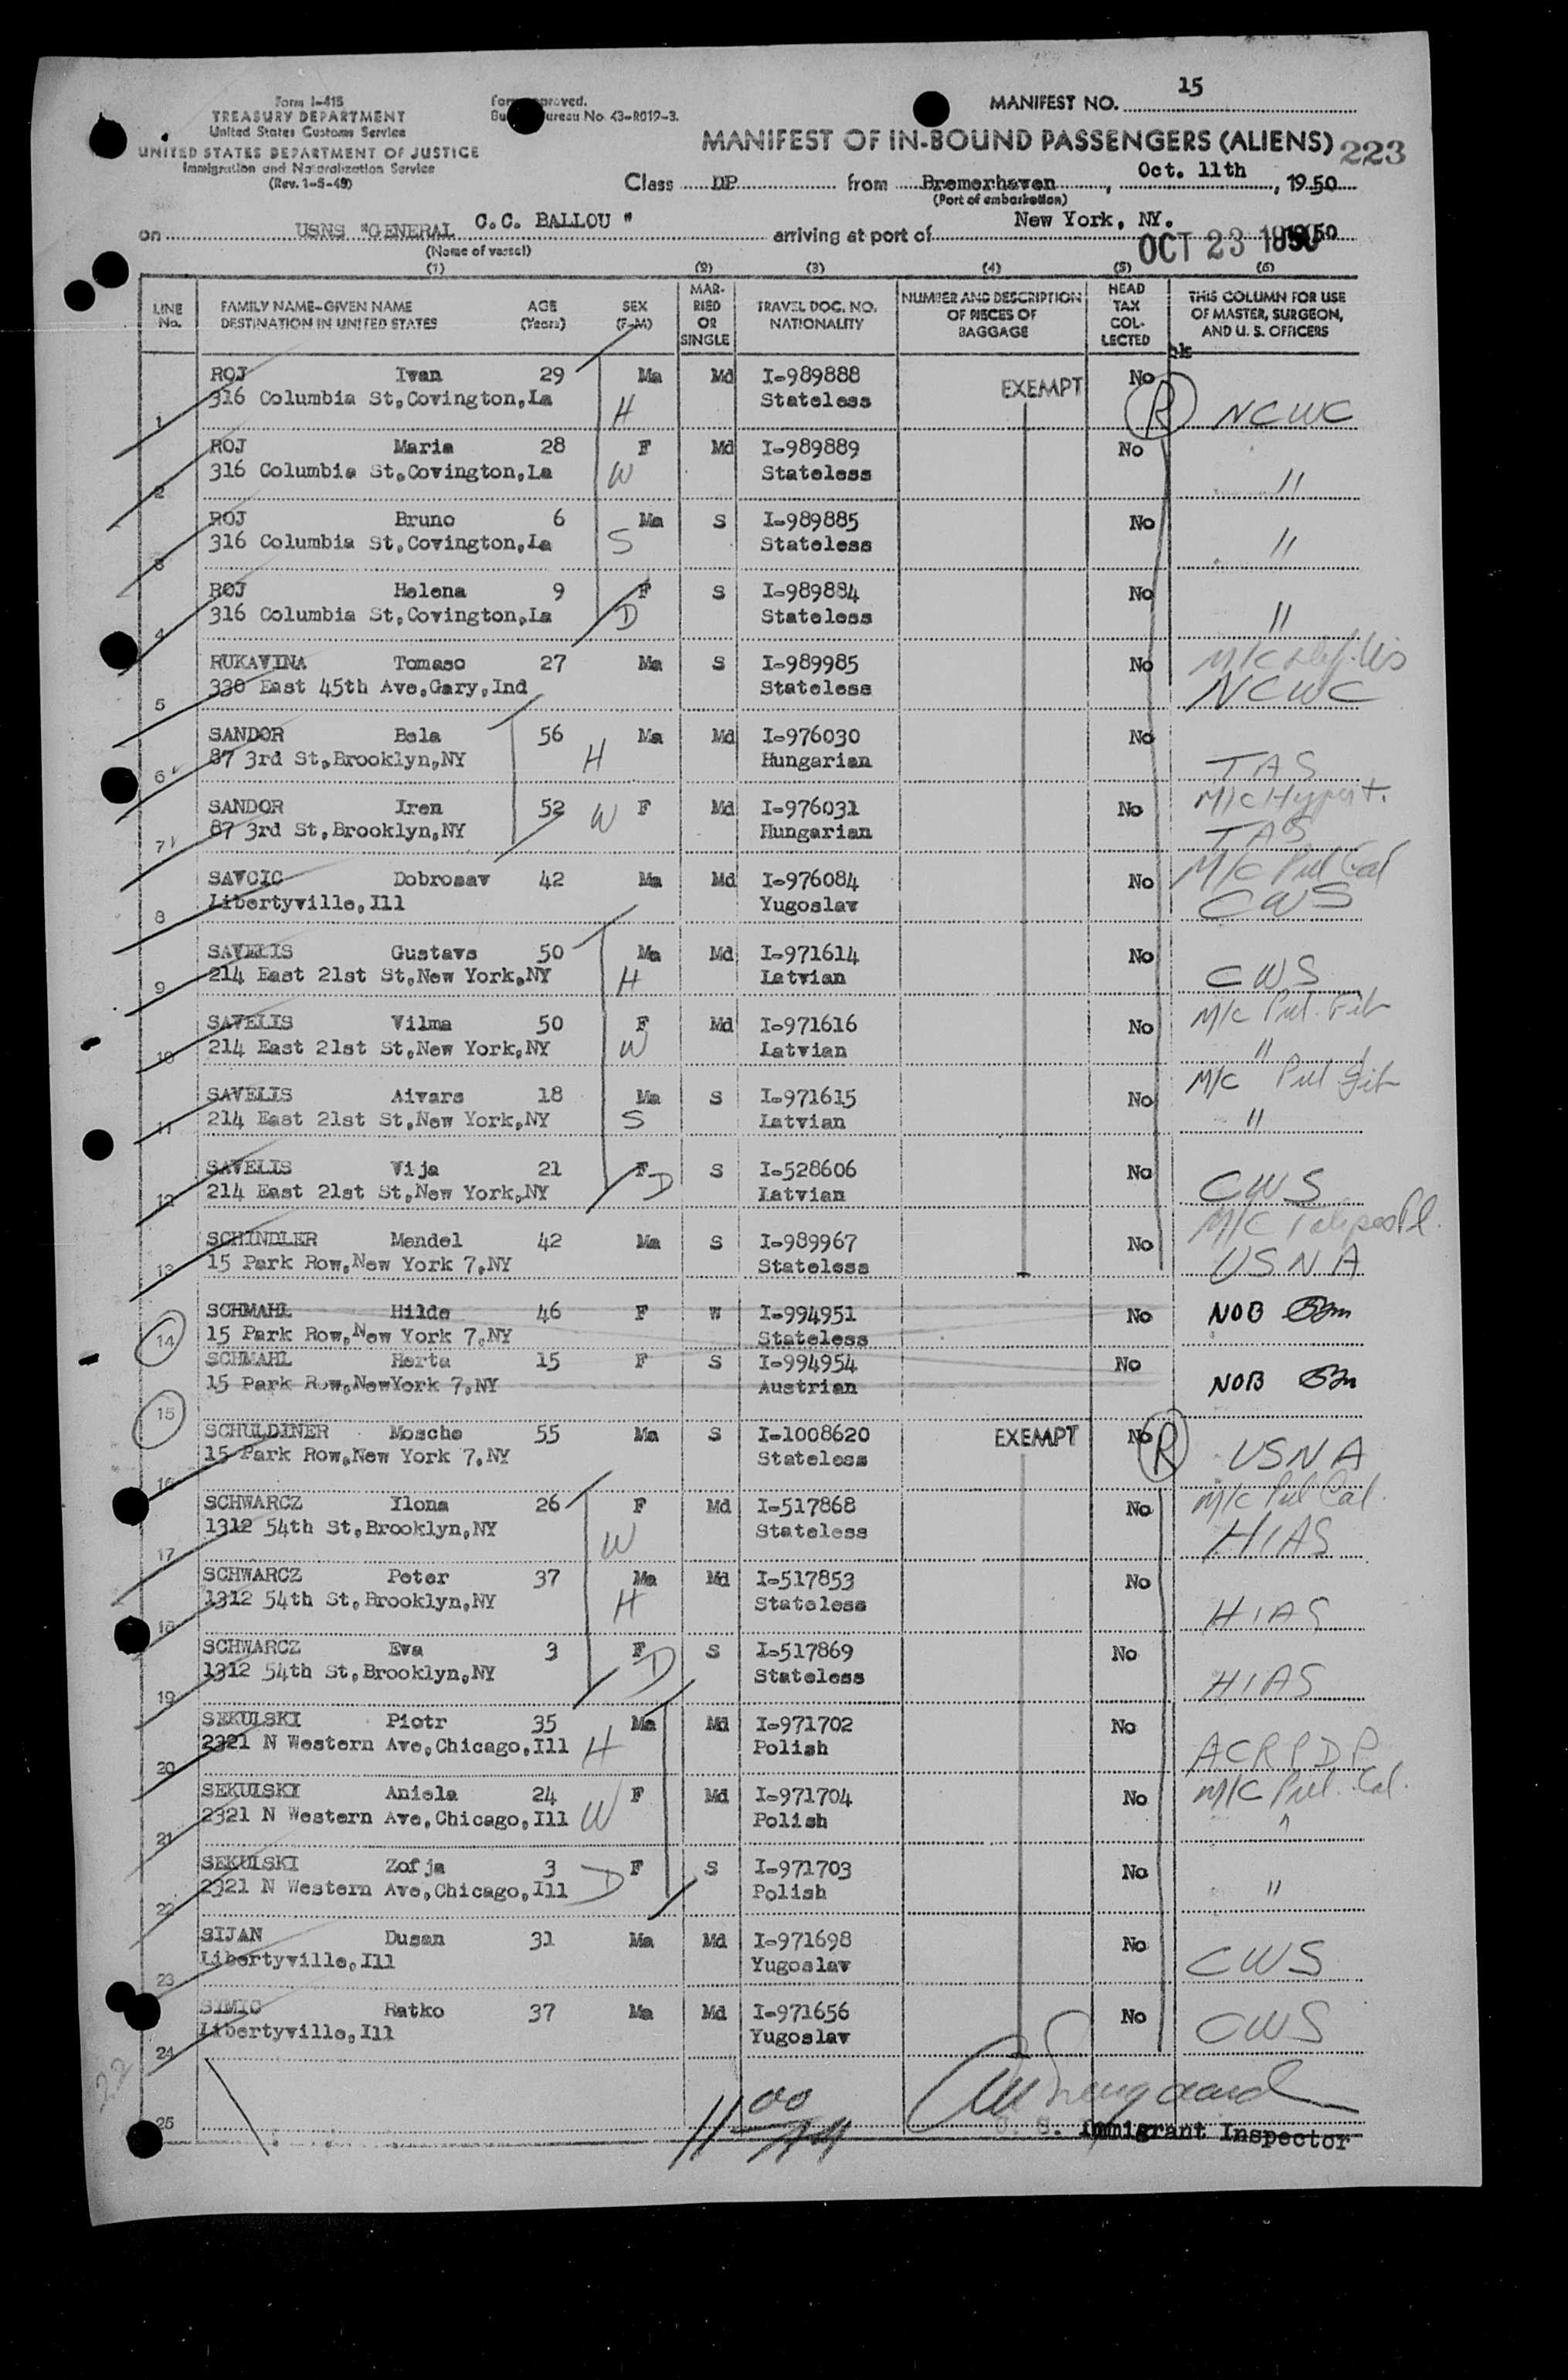 15
Form I-415
TREASURY DEPARTMENT
United States Customs Service
UNITED STATES DEPARTMENT OF JUSTICE
Immigration and Naturalization Service
(Rev. 1-5-49)
Form approved.
Bureau No. 43-R019-3.
MANIFEST NO.
MANIFEST OF IN-BOUND PASSENGERS (ALIENS) 223
Class DP from Bremerhaven, Oct. 11th, 1950
(Port of embarkation)
on USNS "GENERAL C.C. BALLOU " arriving at port of New York, NY. OCT 23 1950
(Name of vessel)
(1) (2) (3) (4) (5) (6)
LINE No. FAMILY NAME-GIVEN NAME DESTINATION IN UNITED STATES AGE (Years) SEX (F-M) MARRIED OR SINGLE TRAVEL DOC. NO. NATIONALITY NUMBER AND DESCRIPTION OF PIECES OF BAGGAGE HEAD TAX COLLECTED THIS COLUMN FOR USE OF MASTER, SURGEON, AND U. S. OFFICERS
ROJ Iwan 29 Ma Md I-989888 EXEMPT No
1 316 Columbia St,Covington,La H Stateless R NCWC
ROJ Maria 28 F Md I-989889 No
2 316 Columbia St,Covington,La W Stateless "
ROJ Bruno 6 Ma S I-989885 No
3 316 Columbia St,Covington,La S Stateless "
ROJ Helena 9 F S I-989884 No
4 316 Columbia St,Covington,La D Stateless "
RUKAVINA Tomaso 27 Ma S I-989985 No M/C
5 330 East 45th Ave,Gary,Ind Stateless NCWC
SANDOR Bela 56 Ma Md I-976030 No
6 87 3rd St,Brooklyn,NY H Hungarian TAS
SANDOR Iren 52 W F Md I-976031 No M/C Hypert.
7 87 3rd St,Brooklyn,NY Hungarian TAS
SAVCIC Dobrosav 42 Ma Md I-976084 No M/C Pul Cal
8 Libertyville,Ill Yugoslav CWS
SAVELIS Gustavs 50 Ma Md I-971614 No
9 214 East 21st St,New York,NY H Latvian CWS
SAVELIS Vilma 50 F Md I-971616 No M/C Pul. Fib
10 214 East 21st St,New York,NY W Latvian "
SAVELIS Aivars 18 Ma S I-971615 No M/C Pul Fib
11 214 East 21st St,New York,NY S Latvian "
SAVELIS Vija 21 F S I-528606 No
12 214 East 21st St,New York,NY D Latvian CWS
SCHINDLER Mendel 42 Ma S I-989967 No M/C
13 15 Park Row,New York 7,NY Stateless USNA
SCHMAHL Hilde 46 F W I-994951 No NOB
14 15 Park Row,New York 7,NY Stateless
SCHMAHL Herta 15 F S I-994954 No
15 15 Park Row,NewYork 7,NY Austrian NOB
SCHULDINER Mosche 55 Ma S I-1008620 EXEMPT No
16 15 Park Row,New York 7,NY Stateless R USNA
SCHWARCZ Ilona 26 F Md I-517868 No M/C Pul Cal.
17 1312 54th St,Brooklyn,NY W Stateless HIAS
SCHWARCZ Peter 37 Ma Md I-517853 No
18 1312 54th St,Brooklyn,NY H Stateless HIAS
SCHWARCZ Eva 3 F S I-517869 No
19 1312 54th St,Brooklyn,NY D Stateless HIAS
SEKULSKI Piotr 35 Ma Md I-971702 No
20 2321 N Western Ave,Chicago,Ill H Polish ACRPDP
SEKULSKI Aniela 24 F Md I-971704 No M/C Pul. Cal.
21 2321 N Western Ave,Chicago,Ill W Polish "
SEKULSKI Zofja 3 F S I-971703 No
22 2321 N Western Ave,Chicago,Ill D Polish "
SIJAN Dusan 31 Ma Md I-971698 No
23 Libertyville,Ill Yugoslav CWS
SIMIC Ratko 37 Ma Md I-971656 No
24 Libertyville,Ill Yugoslav CWS
22
25 11 00
U. S. Immigrant Inspector